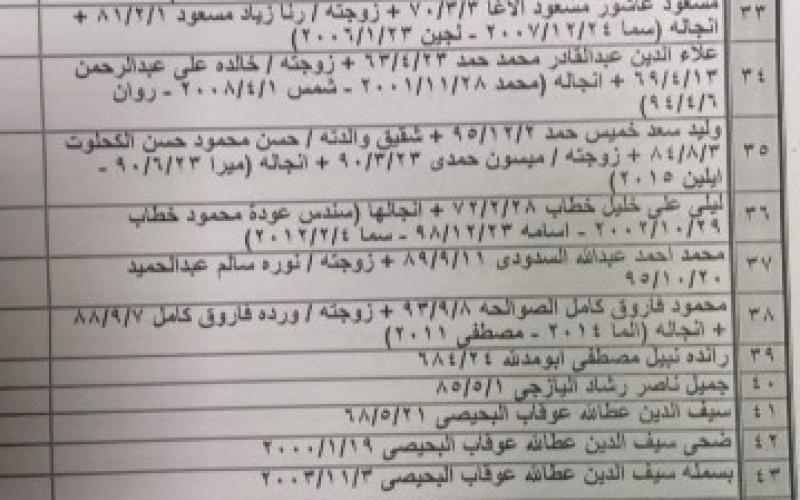 ٣٣ مسعود عاشور مسعود الاغا ٧٠/٣/٣ + زوجته / رنا زياد مسعود ٨١/٢/١ +
انجاله (سما ٢٠٠٧/١٢/٢٤ - لجين ٢٠٠٦/١/٢٣)
٣٤ علاء الدين عبدالقادر محمد حمد ٦٣/٤/٢٣ + زوجته / خالده على عبدالرحمن
٦٩/٤/١٣ + انجاله (محمد ٢٠٠١/١١/٢٨ - شمس ٢٠٠٨/٤/١ - روان
٩٤/٤/٦)
٣٥ وليد سعد خميس حمد ٩٥/١٢/٢ + شقيق والدته / حسن محمود حسن الكحلوت
٨٤/٨/٣ + زوجته / ميسون حمدى ٩٠/٣/٢٣ + انجاله (ميرا ٩٠/٦/٢٣ -
ايلين ٢٠١٥)
٣٦ ليلى على خليل خطاب ٧٢/٢/٢٨ + انجالها (سندس عودة محمود خطاب
٢٠٠٢/١٠/٢٩ - اسامه ٩٨/١٢/٢٣ - سما ٢٠١٢/٢/٤)
٣٧ محمد احمد عبدالله السدودى ٨٩/٩/١١ + زوجته / نوره سالم عبدالحميد
٩٥/١٠/٢٠
٣٨ محمود فاروق كامل الصوالحه ٩٣/٩/٨ + زوجته / ورده فاروق كامل ٨٨/٩/٧
+ انجاله (الما ٢٠١٤ - مصطفى ٢٠١١)
٣٩ رانده نبيل مصطفى ابومدلله ٦٨٤/٢٤
٤٠ جميل ناصر رشاد اليازجى ٨٥/٥/١
٤١ سيف الدين عطالله عوقاب البحيصى ٦٨/٥/٢١
٤٢ ضحى سيف الدين عطالله عوقاب البحيصى ٢٠٠٠/١/١٩
٤٣ بسمله سيف الدين عطالله عوقاب البحيصى ٢٠٠٣/١١/٣